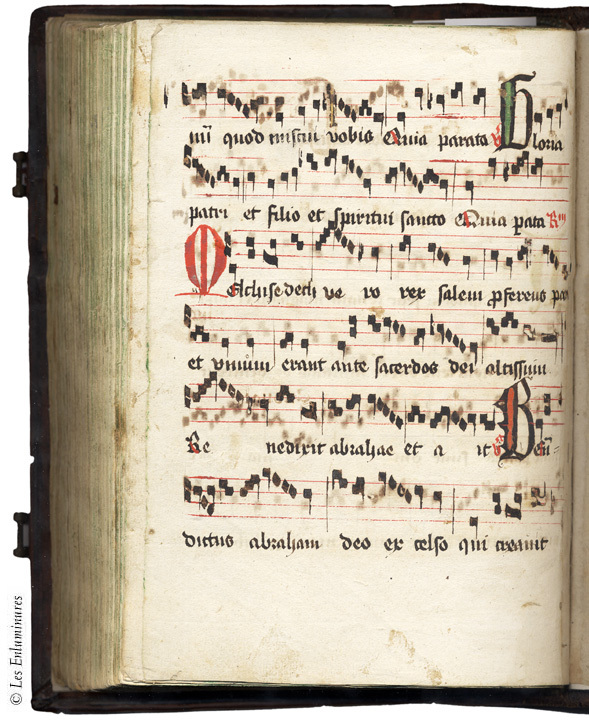 quod misku vobis Quia parata ℣ Gloria
patri et filio et spiritui sancto Quia parata
Melchisedech ve ro rex salem proferens pa
et vinum erant ante sacerdos dei altissimi
Be nedixit abrahae et a it ℣ Bene-
dictus abraham deo ex celso qui creavit
© Les Enluminures